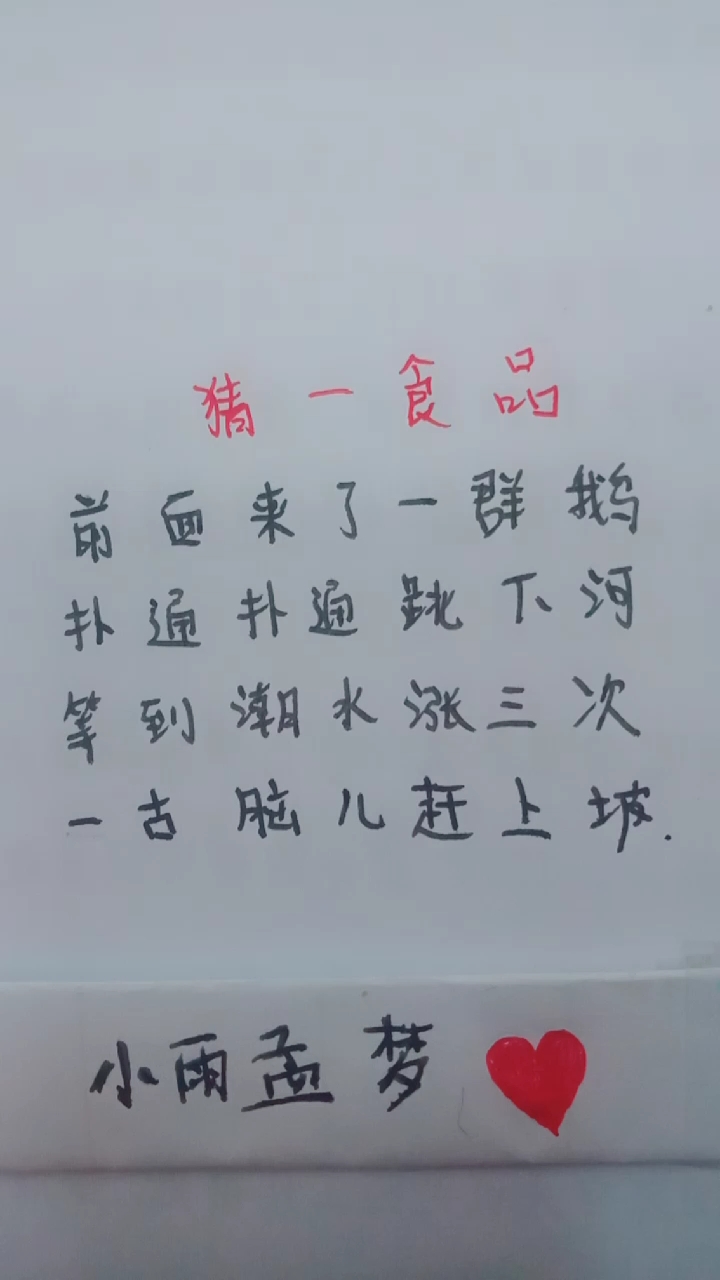 猜一食品
前面来了一群鹅
扑通扑通跳下河
等到潮水涨三次
一古脑儿赶上坡.
小雨孟梦